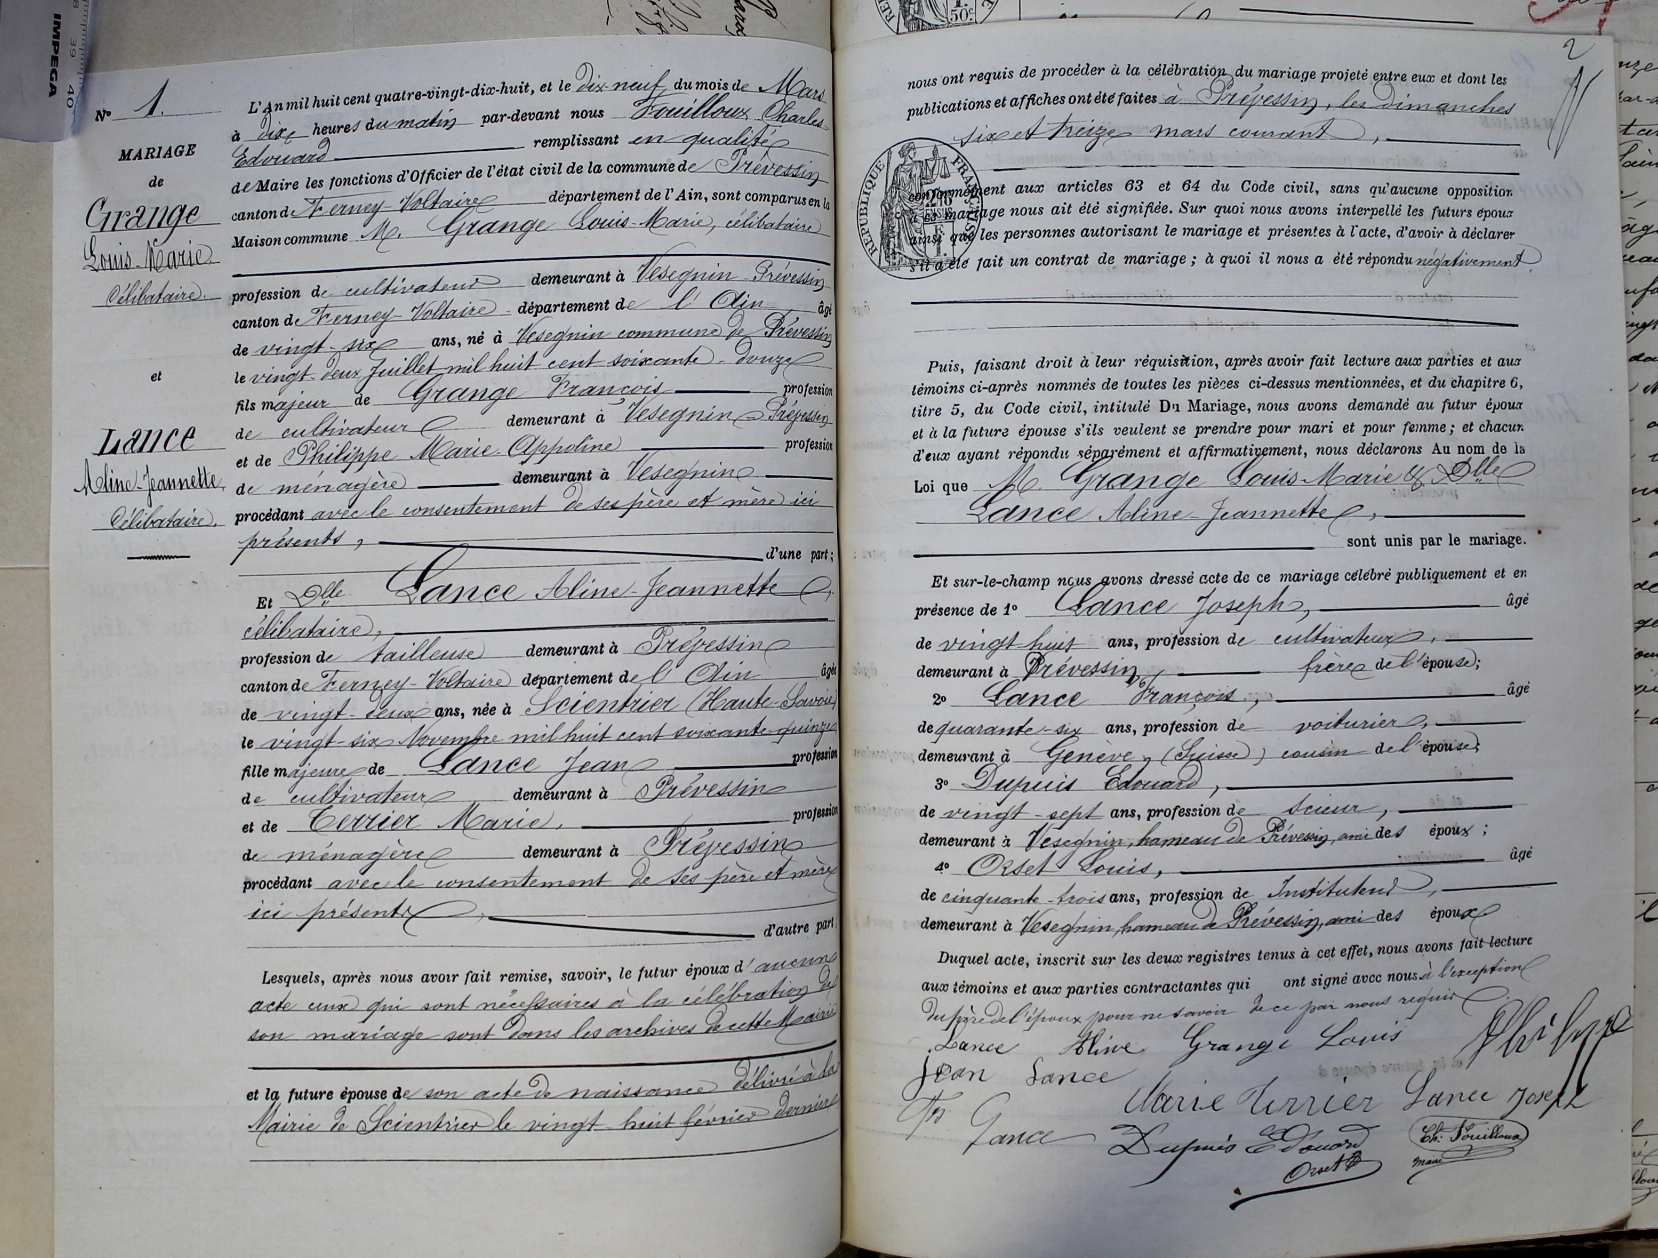 IMPEGA
39 40
Nº 1.
MARIAGE
de
Grange
Louis-Marie
Célibataire.
et
Lance
Aline-Jeannette
Célibataire.
L'An mil huit cent quatre-vingt-dix-huit, et le dix neuf du mois de Mars
à dix heures du matin par-devant nous Fouilloux Charles-
Edouard remplissant en qualité
de Maire les fonctions d'Officier de l'état civil de la commune de Prévessin
canton de Ferney-Voltaire département de l'Ain, sont comparus en la
Maison commune M. Grange Louis-Marie, célibataire
profession de cultivateur demeurant à Vesegnin-Prévessin
canton de Ferney-Voltaire département de l'Ain âgé
de vingt-six ans, né à Vesegnin commune de Prévessin
le vingt-deux Juillet mil huit cent soixante-douze
fils majeur de Grange François profession
de cultivateur demeurant à Vesegnin Prévessin
et de Philippe Marie-Appoline profession
de ménagère demeurant à Vesegnin
procédant avec le consentement de ses père et mère ici
présents, d'une part;
Et Dlle Lance Aline-Jeannette,
célibataire,
profession de tailleuse demeurant à Prévessin
canton de Ferney-Voltaire département de l'Ain âgée
de vingt-deux ans, née à Scientrier (Haute-Savoie)
le vingt-six Novembre mil huit cent soixante-quinze
fille majeure de Lance Jean profession
de cultivateur demeurant à Prévessin
et de Terrier Marie, profession
de ménagère demeurant à Prévessin
procédant avec le consentement de ses père et mère
ici présents, d'autre part
Lesquels, après nous avoir fait remise, savoir, le futur époux d'aucun
acte ceux qui sont nécessaires à la célébration de
son mariage sont dans les archives de cette Mairie
et la future épouse de son acte de naissance délivré à la
Mairie de Scientrier le vingt-huit février dernier
2
nous ont requis de procéder à la célébration du mariage projeté entre eux et dont les
publications et affiches ont été faites à Prévessin, les dimanches
six et treize mars courant,
RÉPUBLIQUE FRANÇAISE
conformément aux articles 63 et 64 du Code civil, sans qu'aucune opposition
à ce mariage nous ait été signifiée. Sur quoi nous avons interpellé les futurs époux
ainsi que les personnes autorisant le mariage et présentes à l'acte, d'avoir à déclarer
s'il a été fait un contrat de mariage; à quoi il nous a été répondu négativement.
Puis, faisant droit à leur réquisition, après avoir fait lecture aux parties et aux
témoins ci-après nommés de toutes les pièces ci-dessus mentionnées, et du chapitre 6,
titre 5, du Code civil, intitulé Du Mariage, nous avons demandé au futur époux
et à la future épouse s'ils veulent se prendre pour mari et pour femme; et chacun
d'eux ayant répondu séparément et affirmativement, nous déclarons Au nom de la
Loi que M. Grange Louis-Marie & Dlle
Lance Aline-Jeannette,
sont unis par le mariage.
Et sur-le-champ nous avons dressé acte de ce mariage célébré publiquement et en
présence de 1º Lance Joseph, âgé
de vingt-huit ans, profession de cultivateur,
demeurant à Prévessin, frère de l'épouse;
2º Lance François, âgé
de quarante-six ans, profession de voiturier,
demeurant à Genève, (Suisse) cousin de l'épouse;
3º Dupuis Edouard,
de vingt-sept ans, profession de scieur,
demeurant à Vesegnin, hameau de Prévessin, ami des époux;
4º Orset Louis, âgé
de cinquante-trois ans, profession de Instituteur,
demeurant à Vesegnin, hameau de Prévessin, ami des époux
Duquel acte, inscrit sur les deux registres tenus à cet effet, nous avons fait lecture
aux témoins et aux parties contractantes qui ont signé avec nous à l'exception
du père de l'époux pour ne savoir de ce par nous requis.
Lance Aline Grange Louis Philippe
Jean Lance
Marie Terrier Lance Joseph
Fs Lance
Dupuis Edouard Ch. Fouilloux
Orset maire